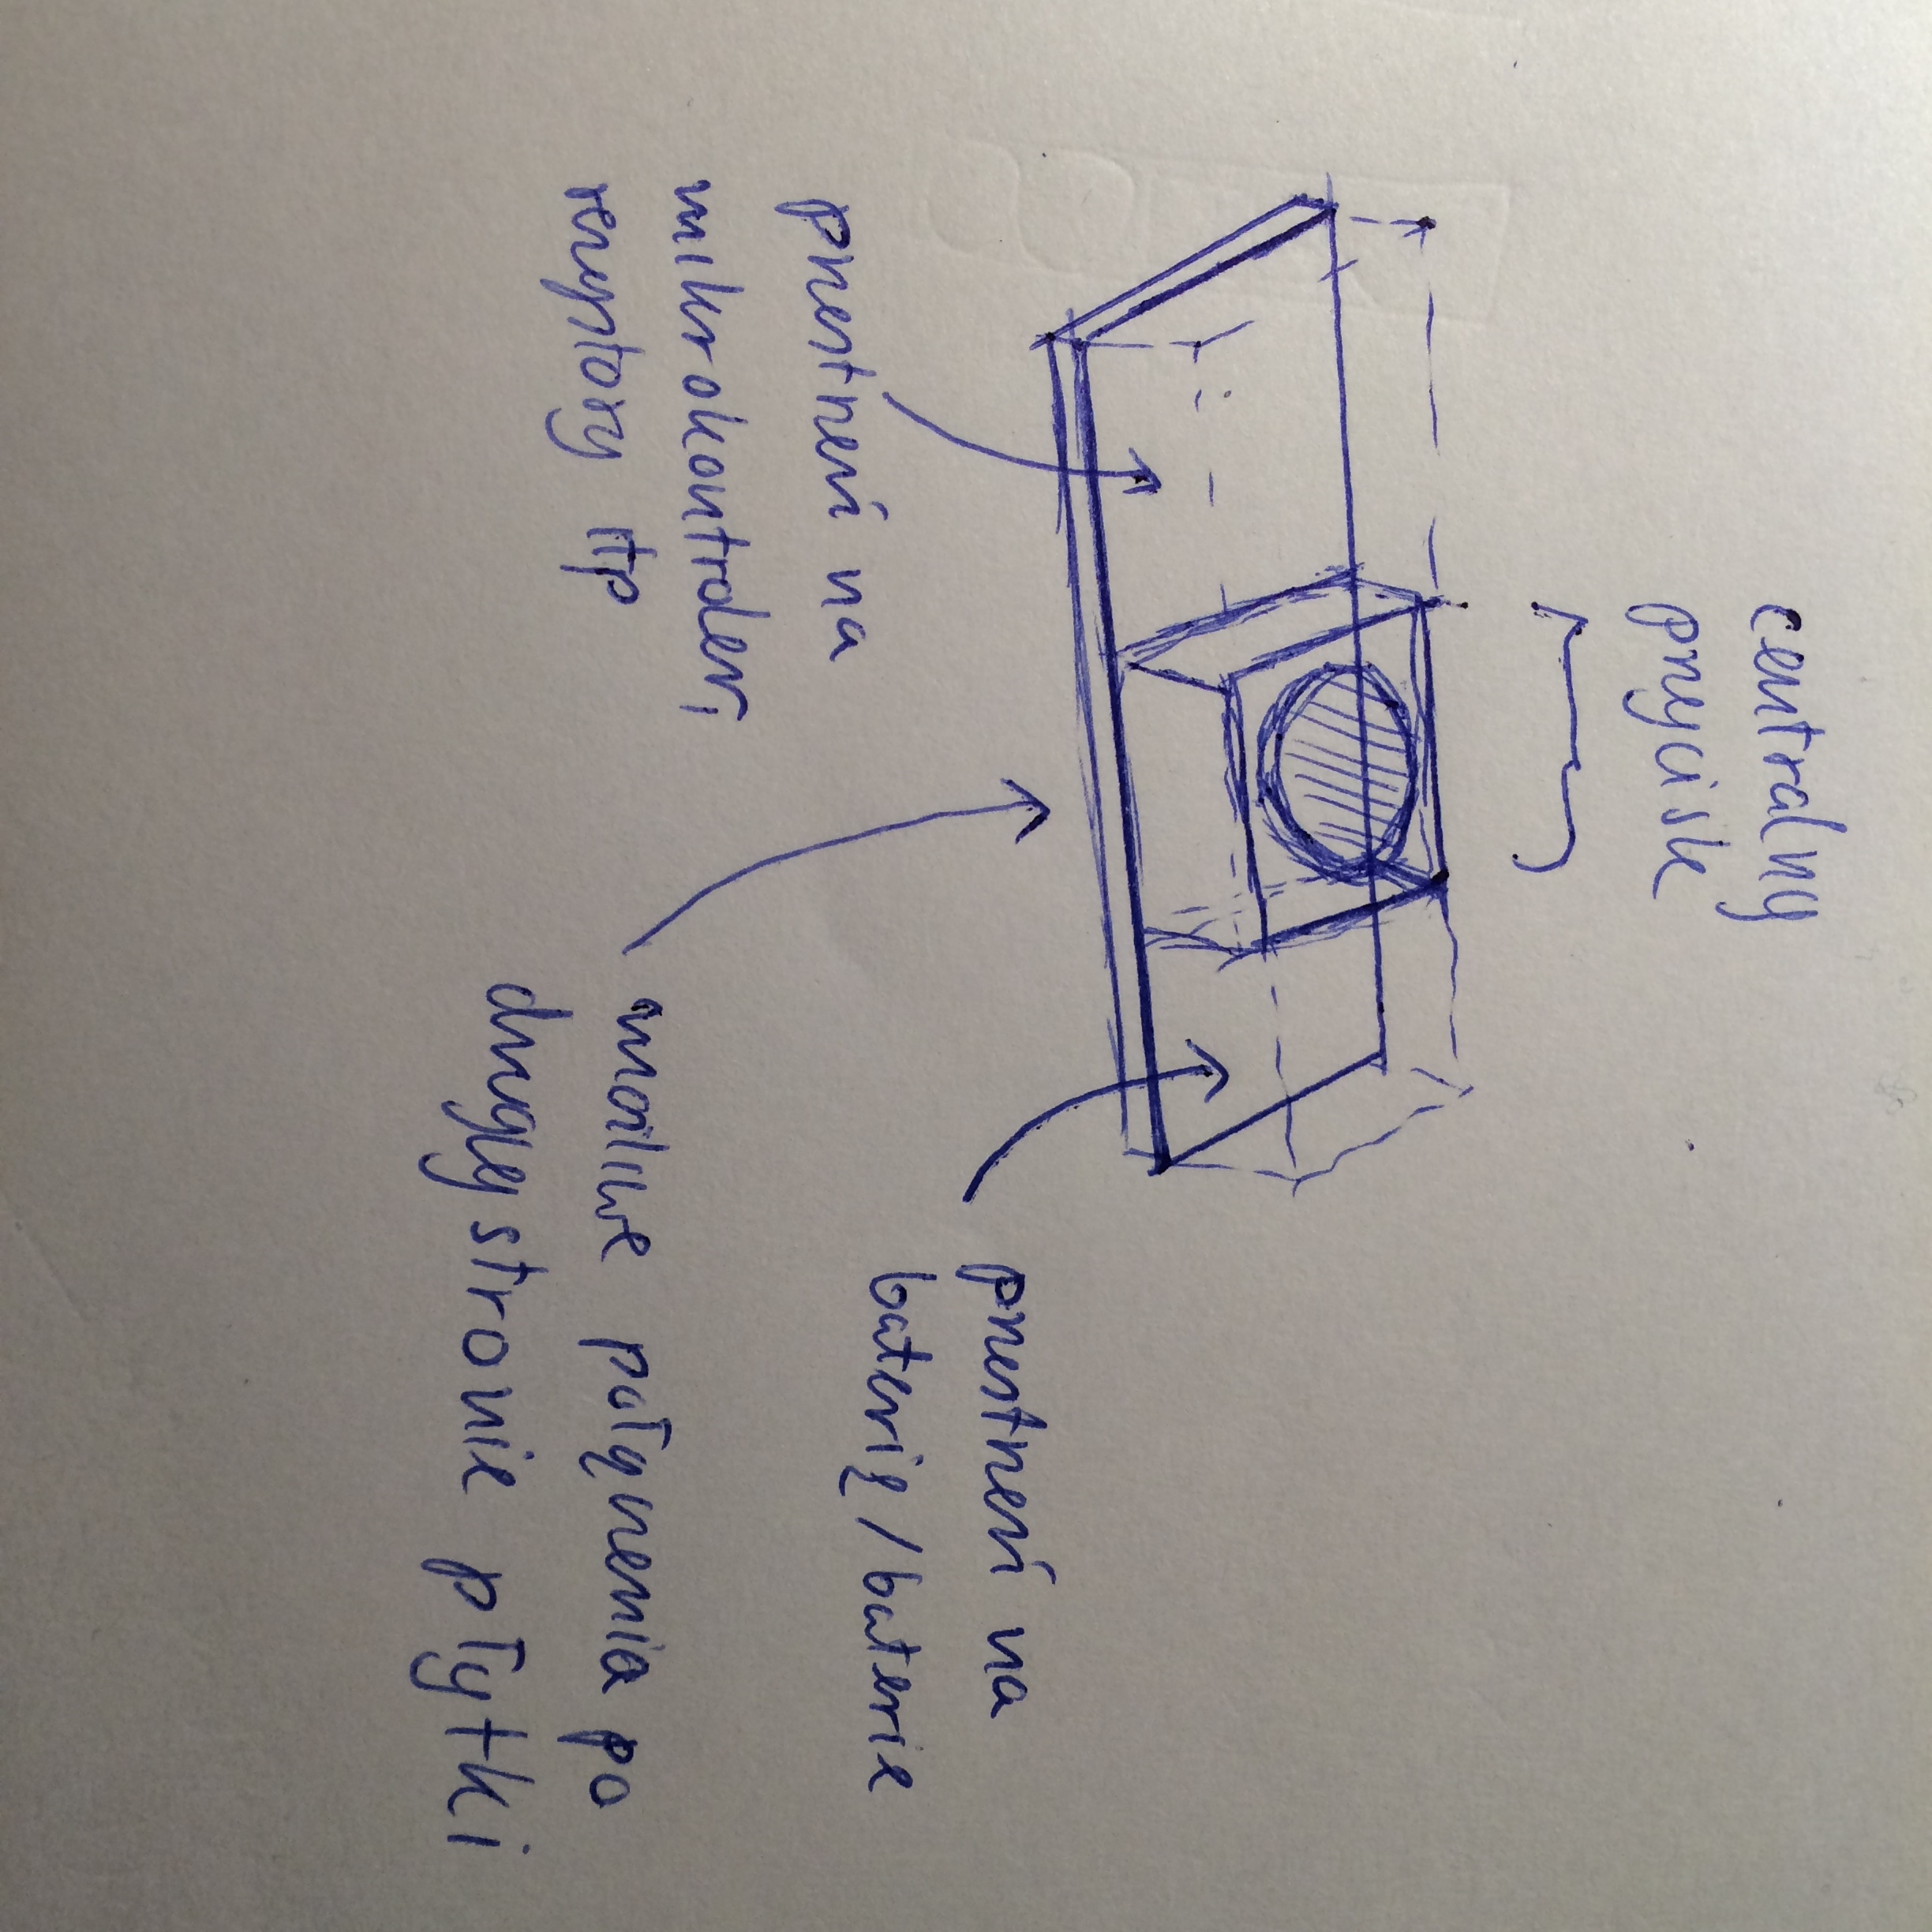 centralny
przycisk
przestrzeń na
mikrokontroler,
rezystory itp
przestrzeń na
baterię / baterie
możliwe połączenia po
drugiej stronie płytki